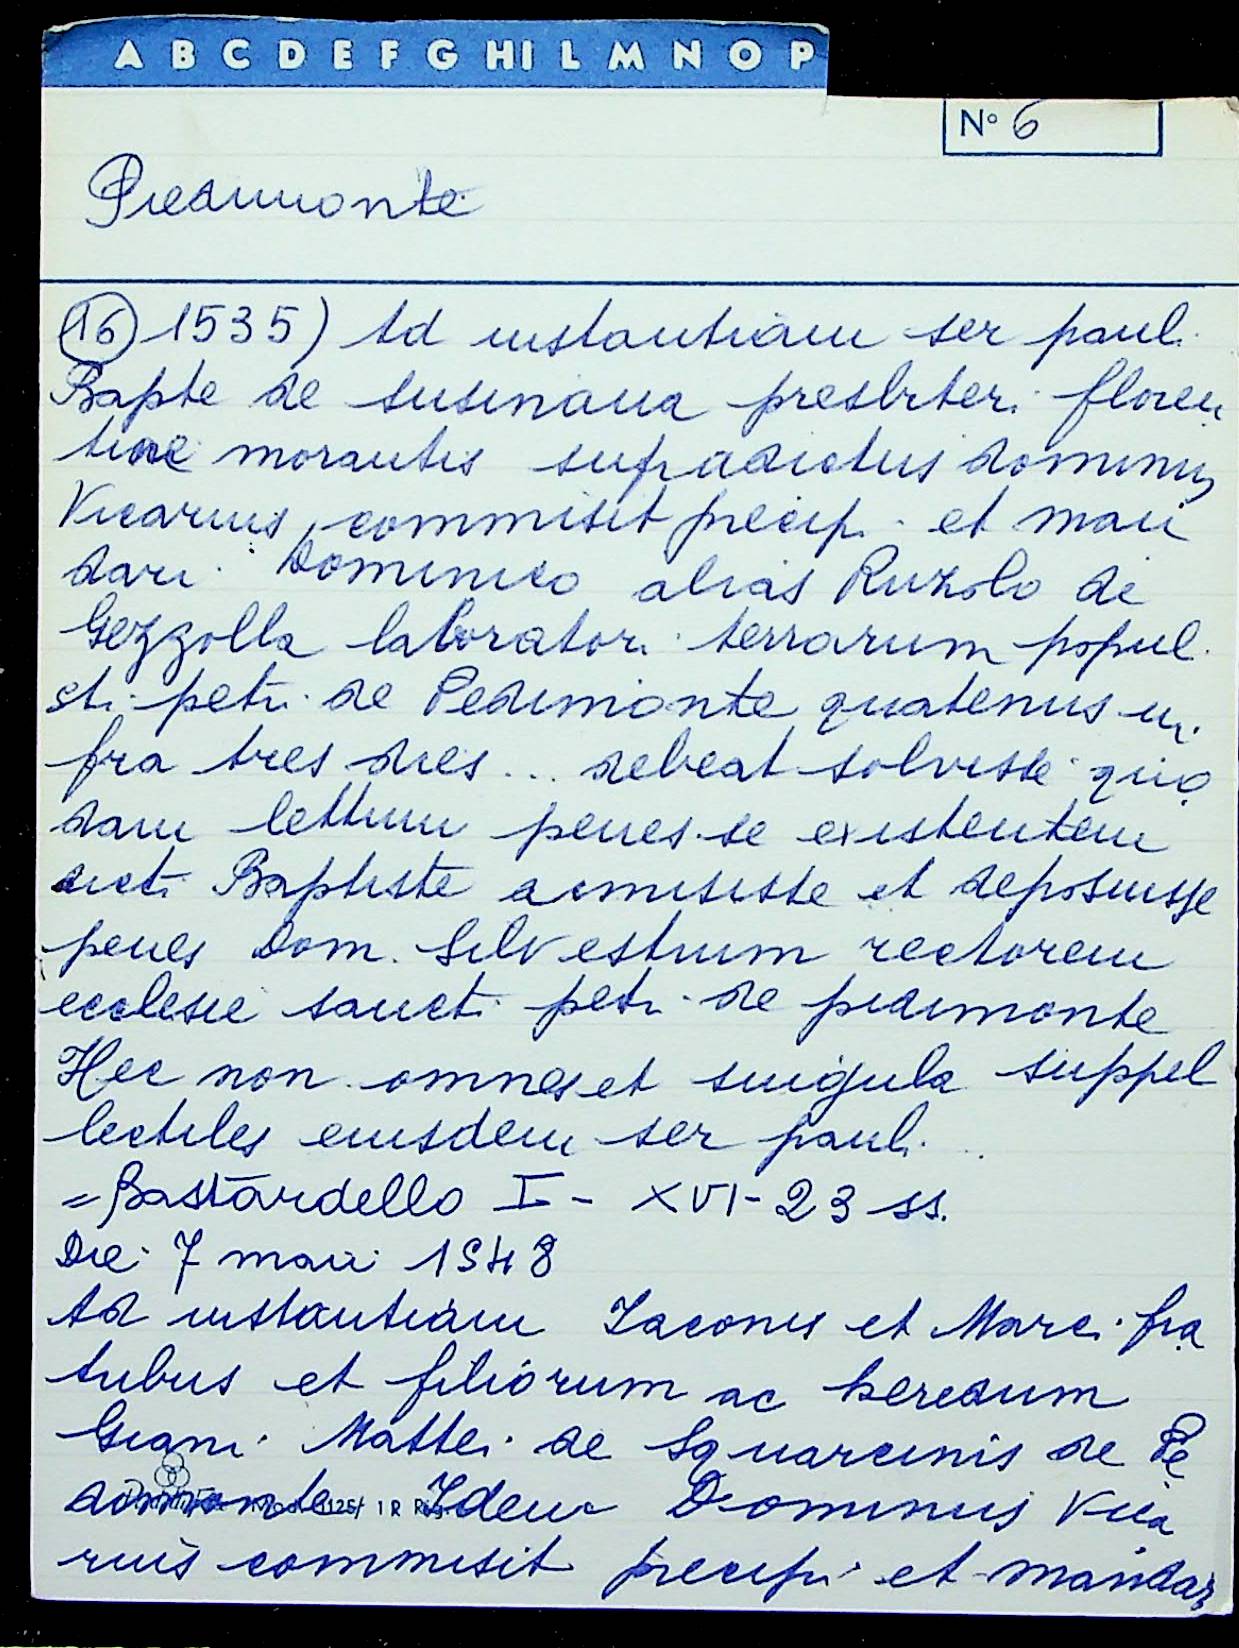 A B C D E F G HI L M N O P
N° 6
Piedimonte
(16) 1535) Ad instantiam ser pauli
Bapte de Susinana presbiteri floren
tine morantis supradictus dominus
Vicarius, commisit precipi et man
dari Dominico alias Ruzolo de
Gezzolla laboratori terrarum populi
sti petri de Pedimonte quatenus in
fra tres dies ... debeat solvisse quo
dam lettum penes se existentem
dicti Baptiste admisisse et deposuisse
penes Dom. Silvestrum rectorem
ecclesie sancti petri de pidimonte
Hec non omnes et singula suppel
lectiles eiusdem ser pauli.
= Bastardello I - XVI - 23 ss.
Die 7 maii 1548
Ad instantiam Iacones et Marci fra
tribus et filiorum ac heredum
Giani Mattei de Squarcinis de Pe
dimonte Idem Dominus Vica
rius commisit precipi et mandar